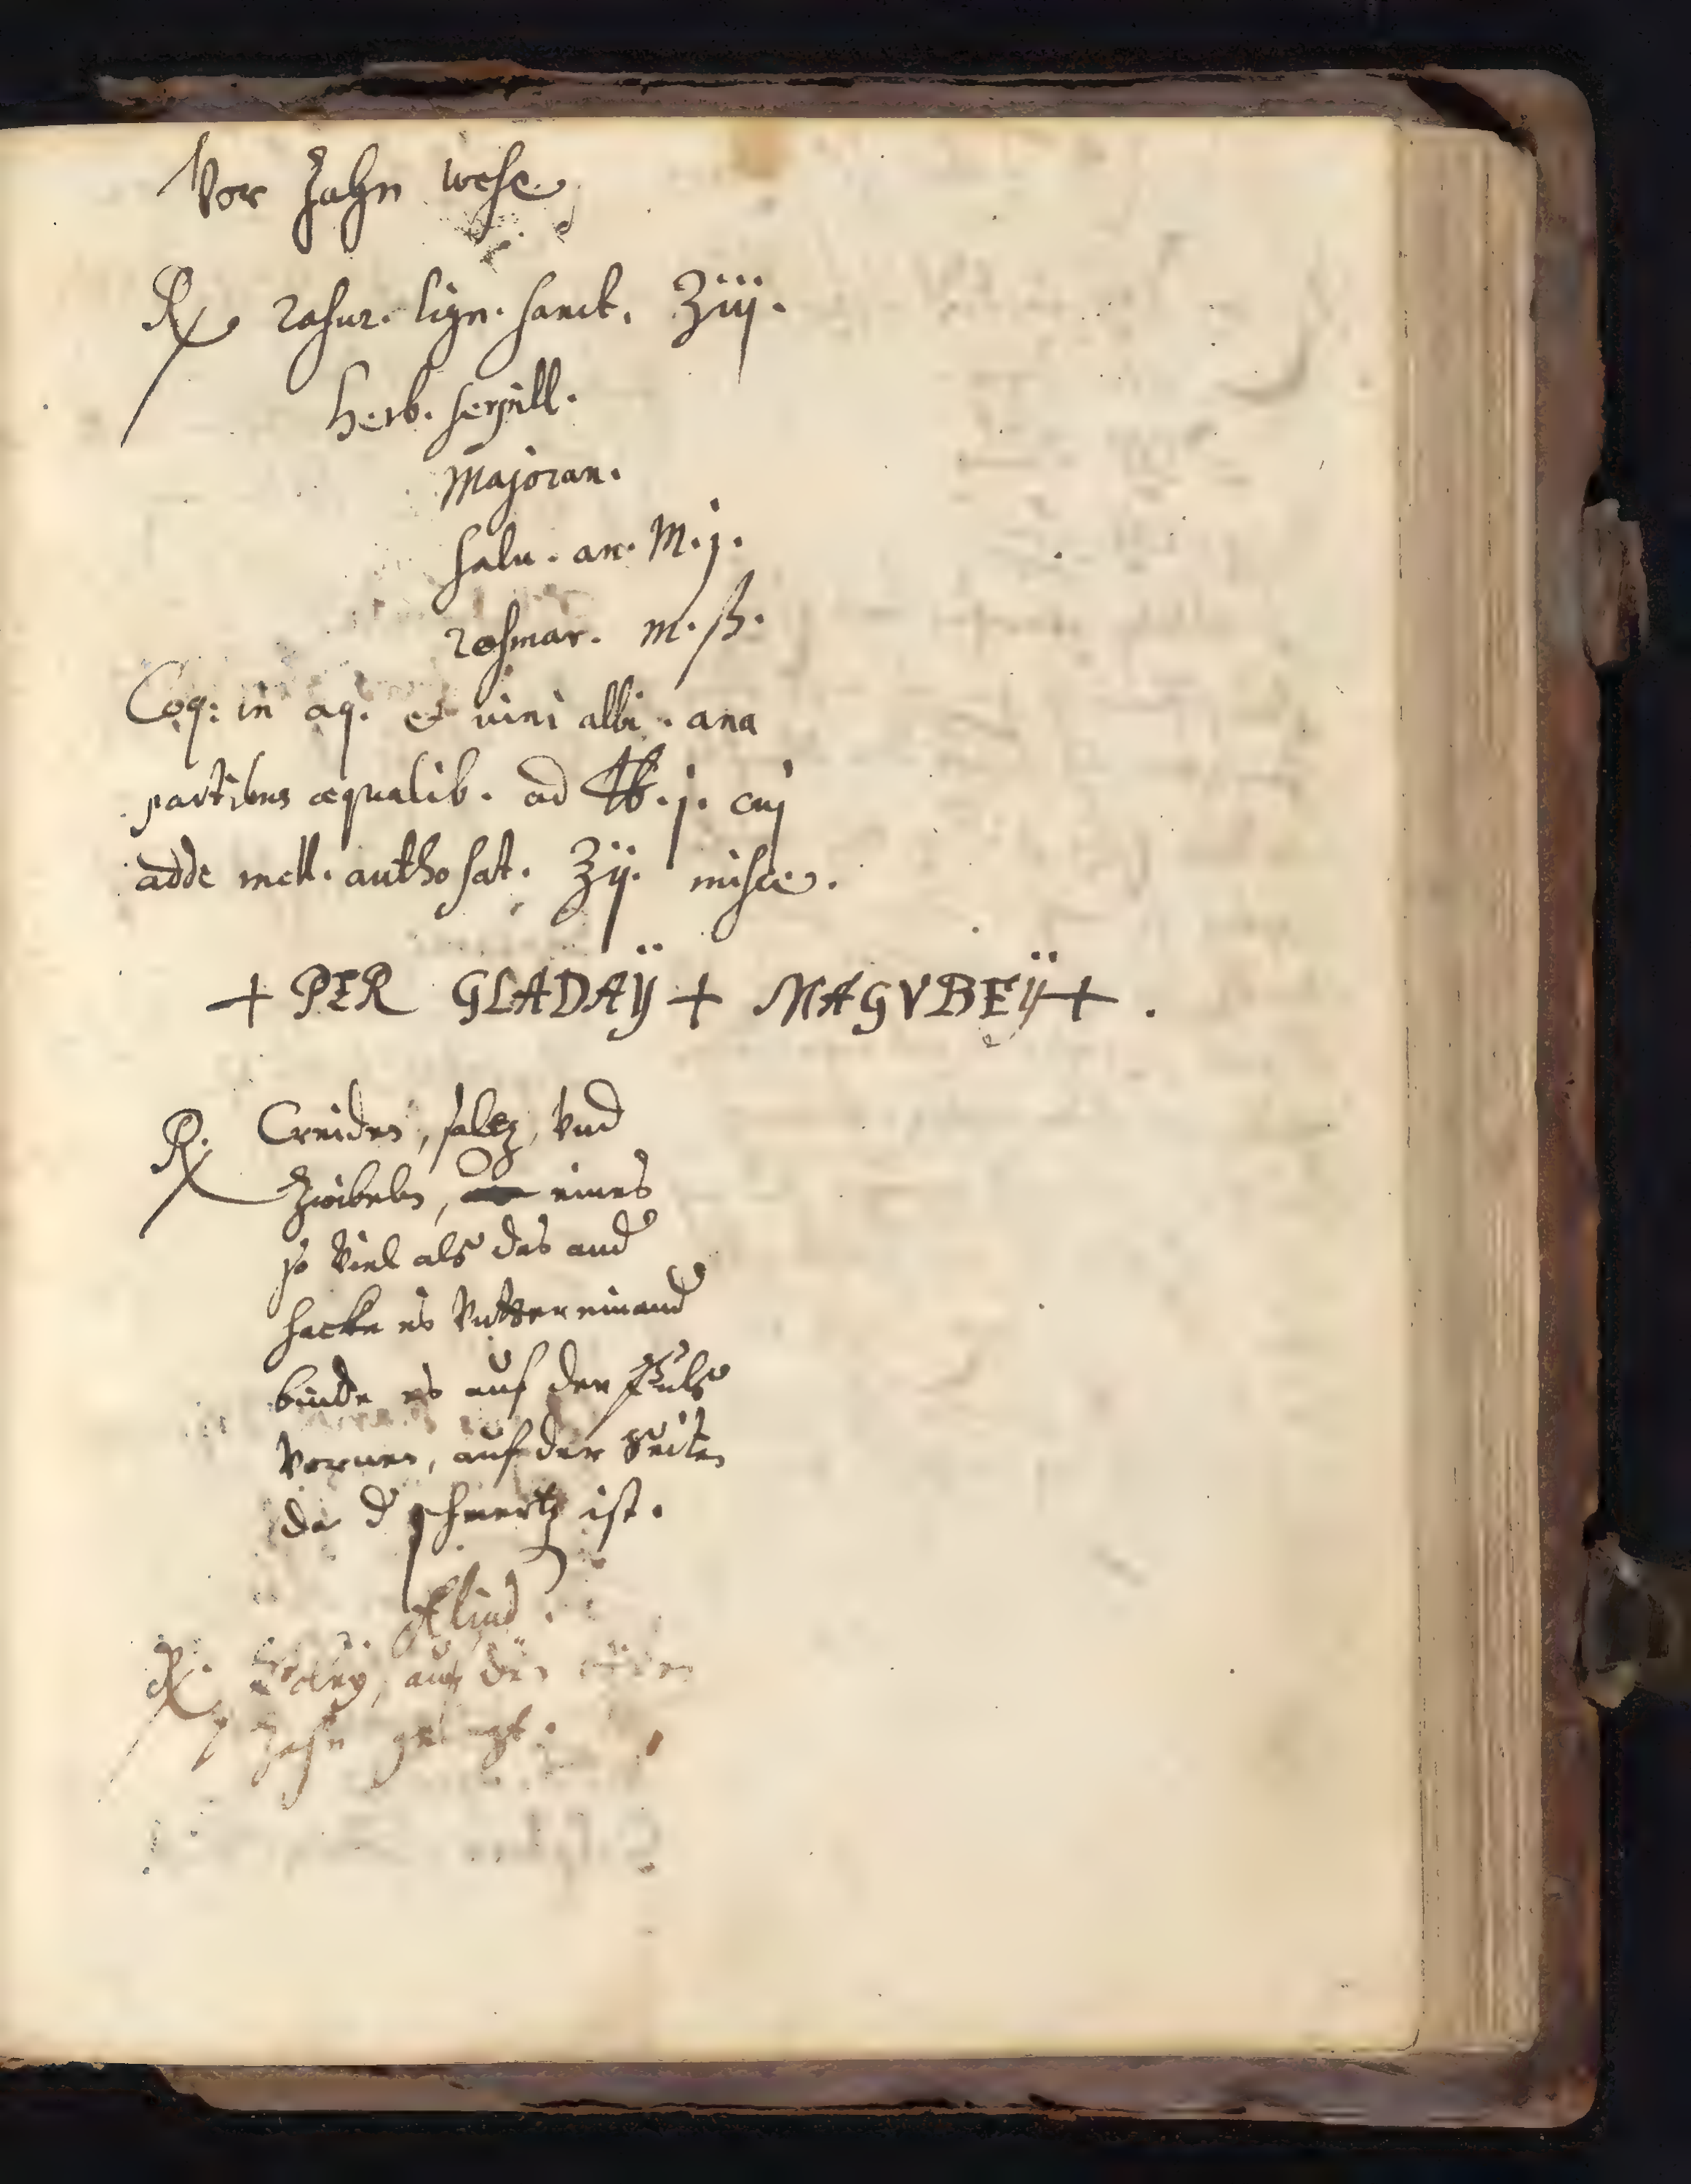 Vor Zahn wehe
℞ rasur. lign. sanct. ʒiij.
herb. serpill.
Majoran.
salv. an. M.j.
rosmar. m.ß.
Coq: in aq. et vini albi. ana
partibus æqualib. ad ℔.j. cuj
adde mell. anthosat. ʒij. misce.
+ PER GLADAŸ + MAGVBEŸ + .
℞. Creiden, saltz, vnd
Zwibeln, eines
so viel als das and
hacke es vntter einand
binde es auf den Puls
vornen, auf der seiten
da d schmertz ist.
Aliud.
℞. auf den
Zahn gelegt.